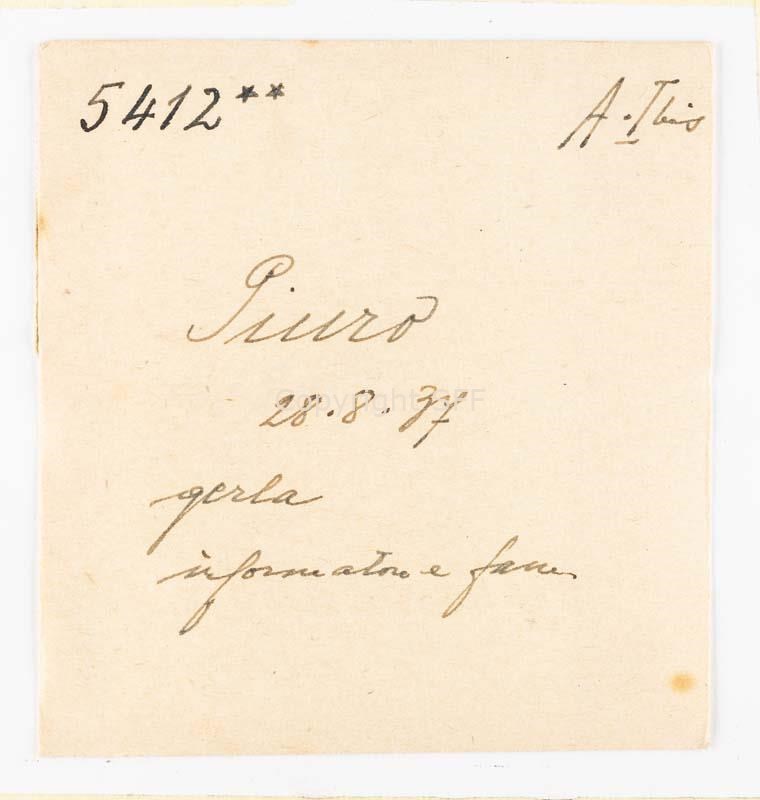 5412** A. I bis
Piuro
28.8.37
Copyright SFF
gerla
informatore e fam.